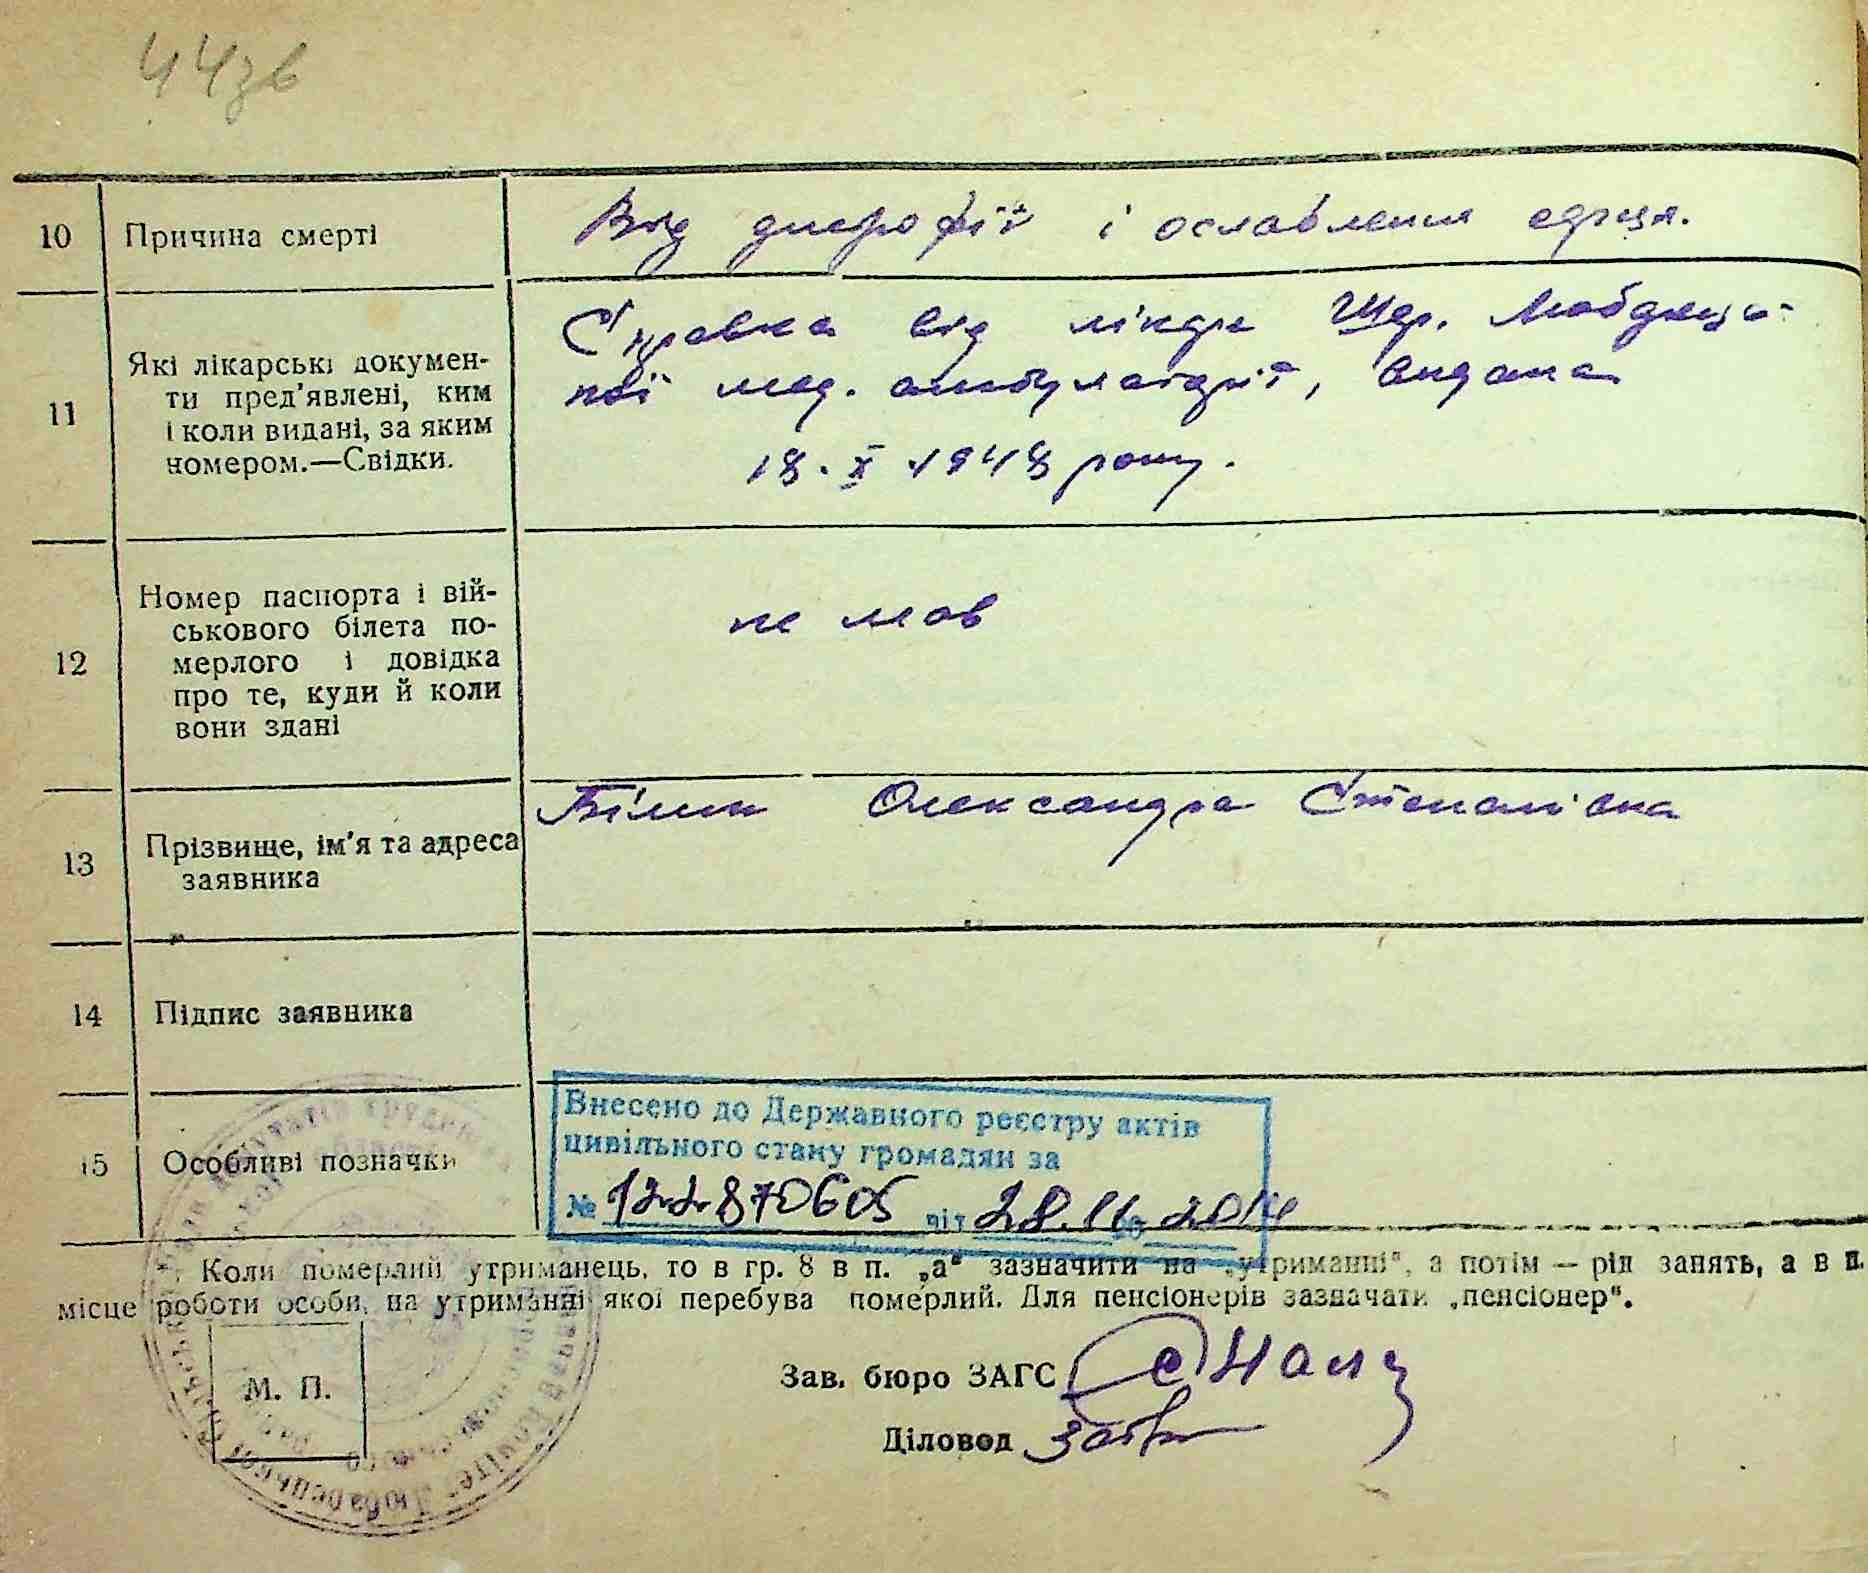 44зв
10 Причина смерті Від дистрофії і ослаблення серця.
11 Які лікарські докумен-
ти пред'явлені, ким
і коли видані, за яким
номером.—Свідки.
Справка від лікаря
мед. амбулаторії, видана
18. X 1948 року.
12 Номер паспорта і вій-
ськового білета по-
мерлого і довідка
про те, куди й коли
вони здані
не мав
13 Прізвище, ім'я та адреса
заявника
Білик Олександра Степанівна
14 Підпис заявника
15 Особливі позначки
Внесено до Державного реєстру актів
цивільного стану громадян за
№ 122870605 від 28.11.2014
Коли померлий утриманець, то в гр. 8 в п. „а" зазначити на „утриманні", а потім — рід занять, а в п.
місце роботи особи, на утриманні якої перебува померлий. Для пенсіонерів зазначати „пенсіонер".
М. П.
Зав. бюро ЗАГС
Діловод